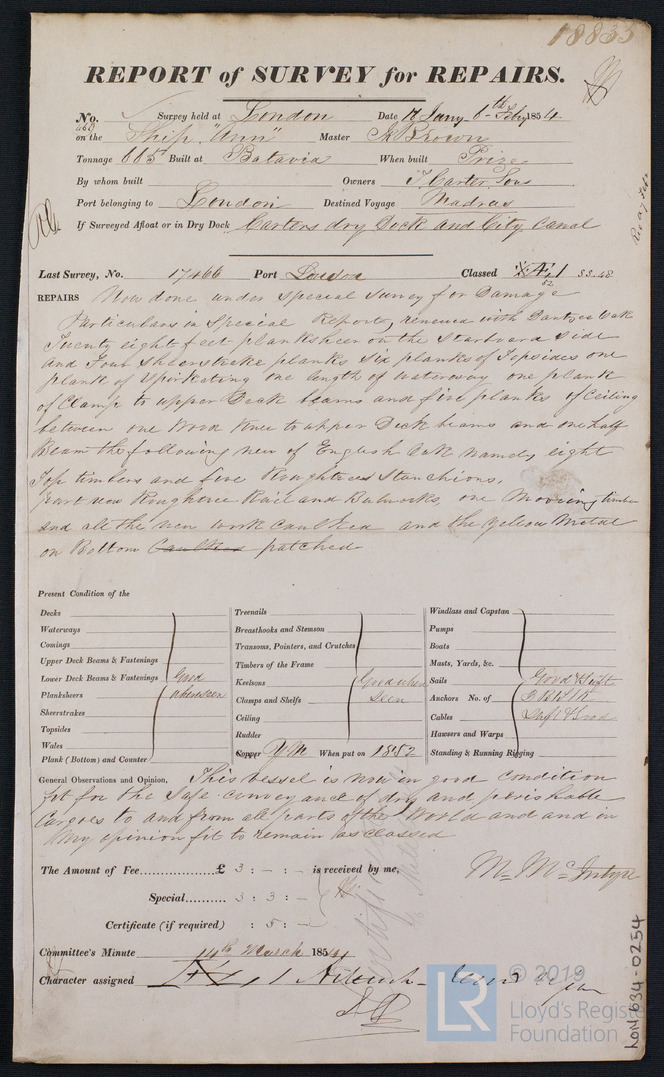 18833
REPORT of SURVEY for REPAIRS.
No. 460 Survey held at London Date 17 Jany 6th Feby 1854
on the Ship "Ann" Master J Brown
Tonnage 665 Built at Batavia When built Prize
By whom built Owners T. Carter, Sons
Port belonging to London Destined Voyage Madras
If Surveyed Afloat or in Dry Dock Carters dry Dock and City Canal
Last Survey, No. 17466 Port London Classed Æ 1 52 SS. 48
REPAIRS Now done under Special Survey for Damage
Particulars in Special Report, renewed with Dantzic Oak
Twenty eight feet planksheer on the Starboard Side
And Four Sheerstrake planks Six planks of Topsides one
plank of Spirketing one length of waterway one plank
of Clamp to upper Deck beams and five planks of Ceiling
between one Wood Knee to upper Deck beams and one half
Beam the following new of English Oak namely eight
Top timbers and five Roughtree Stanchions,
part new Roughtree Rail and Bulwarks, one Mooring timber
and all the new work Caulked and the yellow Metal
on Bottom Caulked patched
Present Condition of the
Decks
Waterways
Comings
Upper Deck Beams & Fastenings
Lower Deck Beams & Fastenings Good
Planksheers where seen
Sheerstrakes
Topsides
Wales
Plank (Bottom) and Counter
Treenails
Breasthooks and Stemson
Transoms, Pointers, and Crutches
Timbers of the Frame
Keelsons Good when
Clamps and Shelfs Seen
Ceiling
Rudder
Copper YM When put on 1852
Windlass and Capstan
Pumps
Boats
Masts, Yards, &c.
Sails Good & Suft
Anchors No. of 3 B 1 S 1 K
Cables Suft & Good
Hawsers and Warps
Standing & Running Rigging
General Observations and Opinion, This vessel is now in good condition
fit for the Safe conveyance of dry and perishable
Cargoes to and from all parts of the World and and in
my opinion fit to remain as classed
The Amount of Fee...........£ 3 : - : - is received by me,
Special........... 3 : 3 : -
Certificate (if required) : 5 : -
Wm McIntyre
Committee's Minute 14th March 1854
Character assigned Æ 1
LR © 2019
Lloyd's Register
Foundation
LON-634-0254